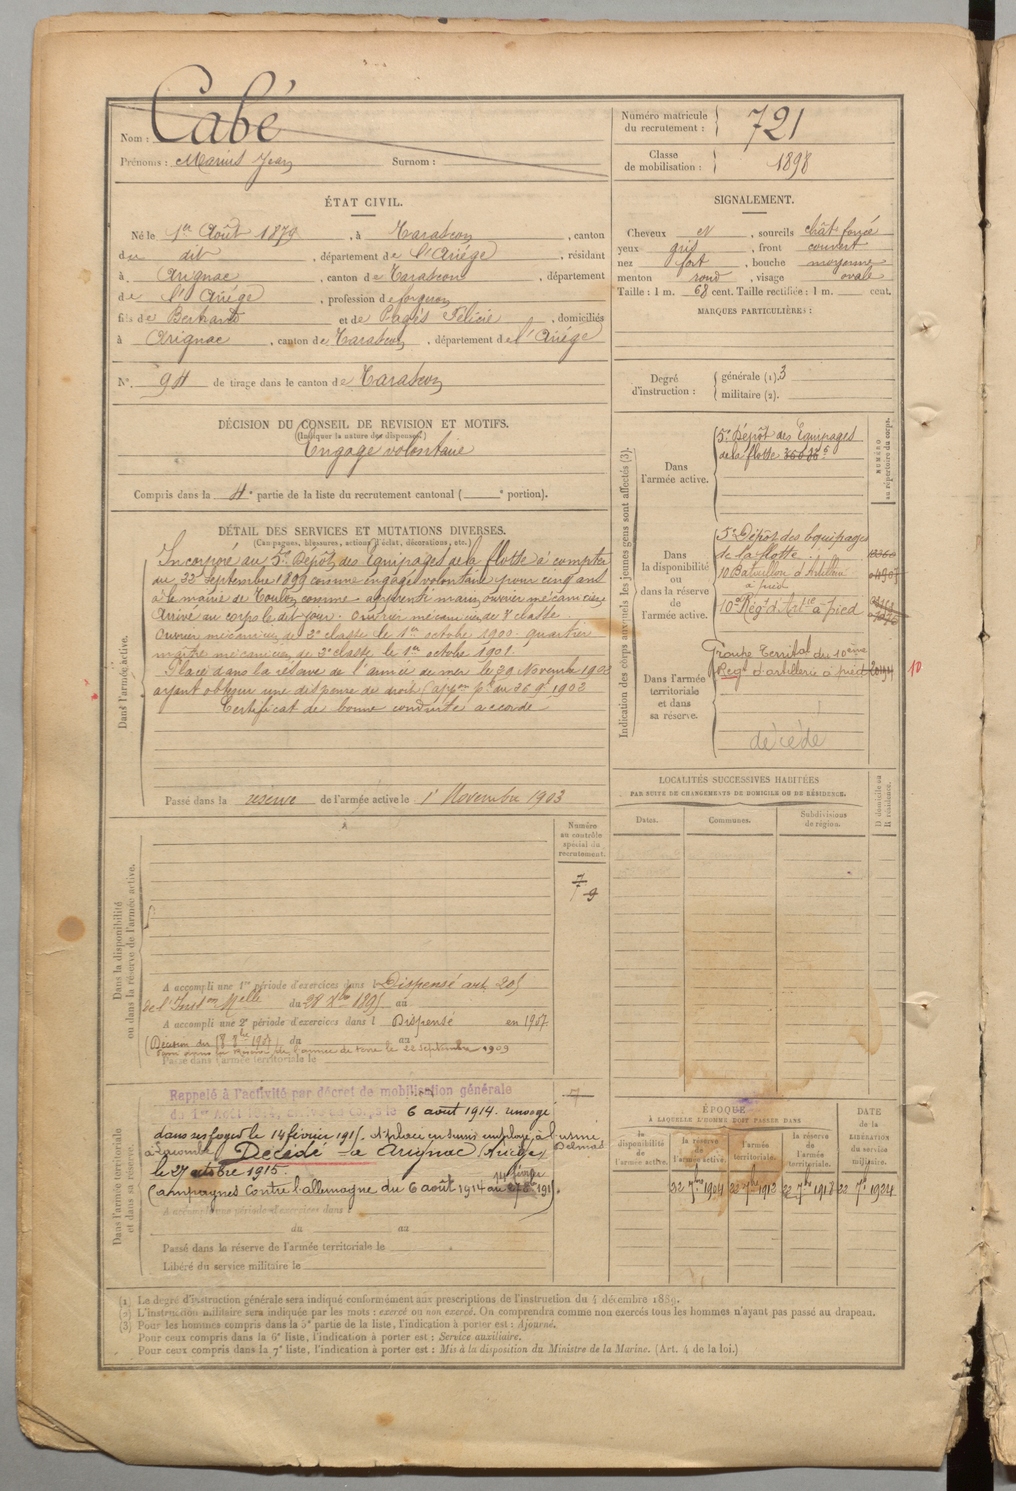 Nom : Cabé
Prénoms : Marius Jean Surnom :
Numéro matricule du recrutement : 721
Classe de mobilisation : 1898
ÉTAT CIVIL.
Né le 1er Août 1879, à Tarascon, canton
de dit, département de l'Ariége, résidant
à Arignac, canton de Tarascon, département
de l'Ariége, profession de forgeron
fils de Bertrand et de Pagés Félicie, domiciliés
à Arignac, canton de Tarascon, département de l'Ariége
N° 94 de tirage dans le canton de Tarascon
SIGNALEMENT.
Cheveux et, sourcils chât foncé
yeux gris, front couvert
nez fort, bouche moyenne
menton rond, visage ovale
Taille : 1 m. 68 cent. Taille rectifiée : 1 m. cent.
MARQUES PARTICULIÈRES :
Degré d'instruction : générale (1). 3
militaire (2).
DÉCISION DU CONSEIL DE REVISION ET MOTIFS.
(Indiquer la nature des dispenses.)
Engagé volontaire
Compris dans la 4e partie de la liste du recrutement cantonal ( e portion).
DÉTAIL DES SERVICES ET MUTATIONS DIVERSES.
(Campagnes, blessures, actions d'éclat, décorations, etc.)
Dans l'armée active.
Incorporé au 5e Dépôt des Equipages de la flotte à compter
du 22 Septembre 1899 comme engagé volontaire pour cinq ans
à la mairie de Toulon comme apprenti marin ouvrier mécanicien
Arrivé au corps le dit jour. Ouvrier mécanicien de classe.
Ouvrier mécanicien de 2e classe le 1er octobre 1900. quartier
maître mécanicien de 3e classe le 1er octobre 1901.
Placé dans la réserve de l'armée de mer le 29 Novembre 1902
ayant obtenu une dispense de droit du 26 9bre 1902
Certificat de bonne conduite accordé
Passé dans la réserve de l'armée active le 1er Novembre 1903
Indication des corps auxquels les jeunes gens sont affectés (3).
NUMÉRO au répertoire du corps.
Dans l'armée active.
5e Dépôt des Equipages
de la flotte
Dans la disponibilité ou dans la réserve de l'armée active.
5e Dépôt des Equipages
de la flotte
10 Bataillon d'Artillerie
à pied
10e Régt d'Artie à pied
Dans l'armée territoriale et dans sa réserve.
Groupe Territal du 10ème
Regt d'artillerie à pied
10
décédé
LOCALITÉS SUCCESSIVES HABITÉES
PAR SUITE DE CHANGEMENTS DE DOMICILE OU DE RÉSIDENCE.
Dates. Communes. Subdivisions de région. D domicile ou R résidence.
Numéro au contrôle spécial du recrutement.
7
9
Dans la disponibilité ou dans la réserve de l'armée active.
A accompli une 1re période d'exercices dans l Dispensé art 205
de l'Instion Melle du 28 Xbre 1895 au
A accompli une 2e période d'exercices dans l Dispensé en 1907
(Décision du 18 8bre 1907) du au
Passé dans l'armée territoriale le
Passé dans la réserve de l'armée de terre le 22 Septembre 1909
Dans l'armée territoriale et dans sa réserve.
Rappelé à l'activité par décret de mobilisation générale
du 1er Août 1914, arrivé au Corps le 6 août 1914. renvoyé
dans ses foyers le 14 février 1915. employé à l'usine
Delmas
Décédé à Arignac, (Ariège)
le 27 octobre 1915.
Campagnes Contre l'allemagne du 6 août 1914 au 14 février 1915.
A accompli une période d'exercices dans
du au
Passé dans la réserve de l'armée territoriale le
Libéré du service militaire le
ÉPOQUE
À LAQUELLE L'HOMME DOIT PASSER DANS
la disponibilité de l'armée active.
la réserve de l'armée active. 22 7bre 1904
l'armée territoriale. 22 7bre 1912
la réserve de l'armée territoriale. 22 7bre 1918
DATE DE LA LIBÉRATION du service militaire. 22 7bre 1924
(1) Le degré d'instruction générale sera indiqué conformément aux prescriptions de l'instruction du 4 décembre 1889.
(2) L'instruction militaire sera indiquée par les mots : exercé ou non exercé. On comprendra comme non exercés tous les hommes n'ayant pas passé au drapeau.
(3) Pour les hommes compris dans la 5e partie de la liste, l'indication à porter est : Ajourné.
Pour ceux compris dans la 6e liste, l'indication à porter est : Service auxiliaire.
Pour ceux compris dans la 7e liste, l'indication à porter est : Mis à la disposition du Ministre de la Marine. (Art. 4 de la loi.)